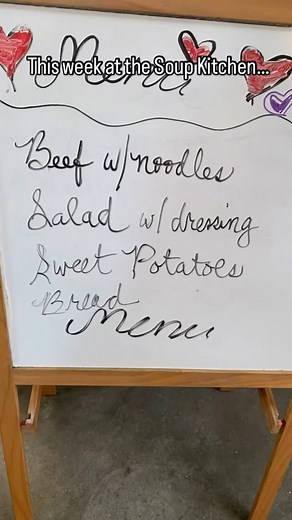 Menu
This week at the Soup Kitchen...
Beef w/noodles
Salad w/ dressing
Sweet Potatoes
Bread
Menu